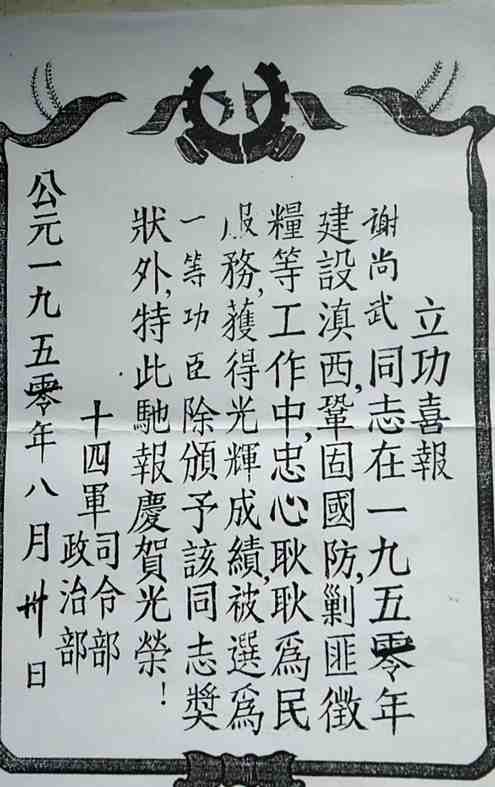 立功喜報
谢尚武同志在一九五零年
建設滇西,鞏固國防,剿匪徵
糧等工作中,忠心耿耿爲民
服務,獲得光輝成績,被選爲
一等功臣除頒予該同志奬
狀外,特此馳報慶賀光榮!
十四軍司令部
政治部
公元一九五零年八月卅日